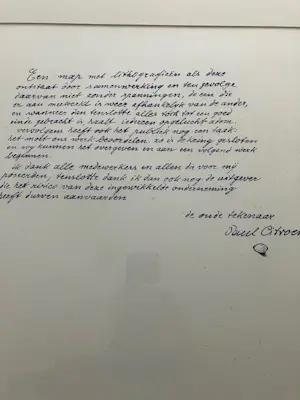 Een map met lithografieën als deze
ontstaat door samenwerking en ten gevolge
daarvan niet zonder spanningen, de een die
er aan meewerkt is weer afhankelijk van de ander,
en wanneer dan tenslotte alles toch tot een goed
eind gebracht is haalt iedereen opgelucht adem.
vervolgens heeft ook het publiek nog een taak:
het moet ons werk beoordelen. zo is de kring gesloten
en wij kunnen het overgeven en aan een volgend werk
beginnen.
ik dank alle medewerkers en allen die voor mij
poseerden, tenslotte dank ik dan ook nog de uitgever
die het risico van deze ingewikkelde onderneming
heeft durven aanvaarden
de oude tekenaar
Paul Citroen